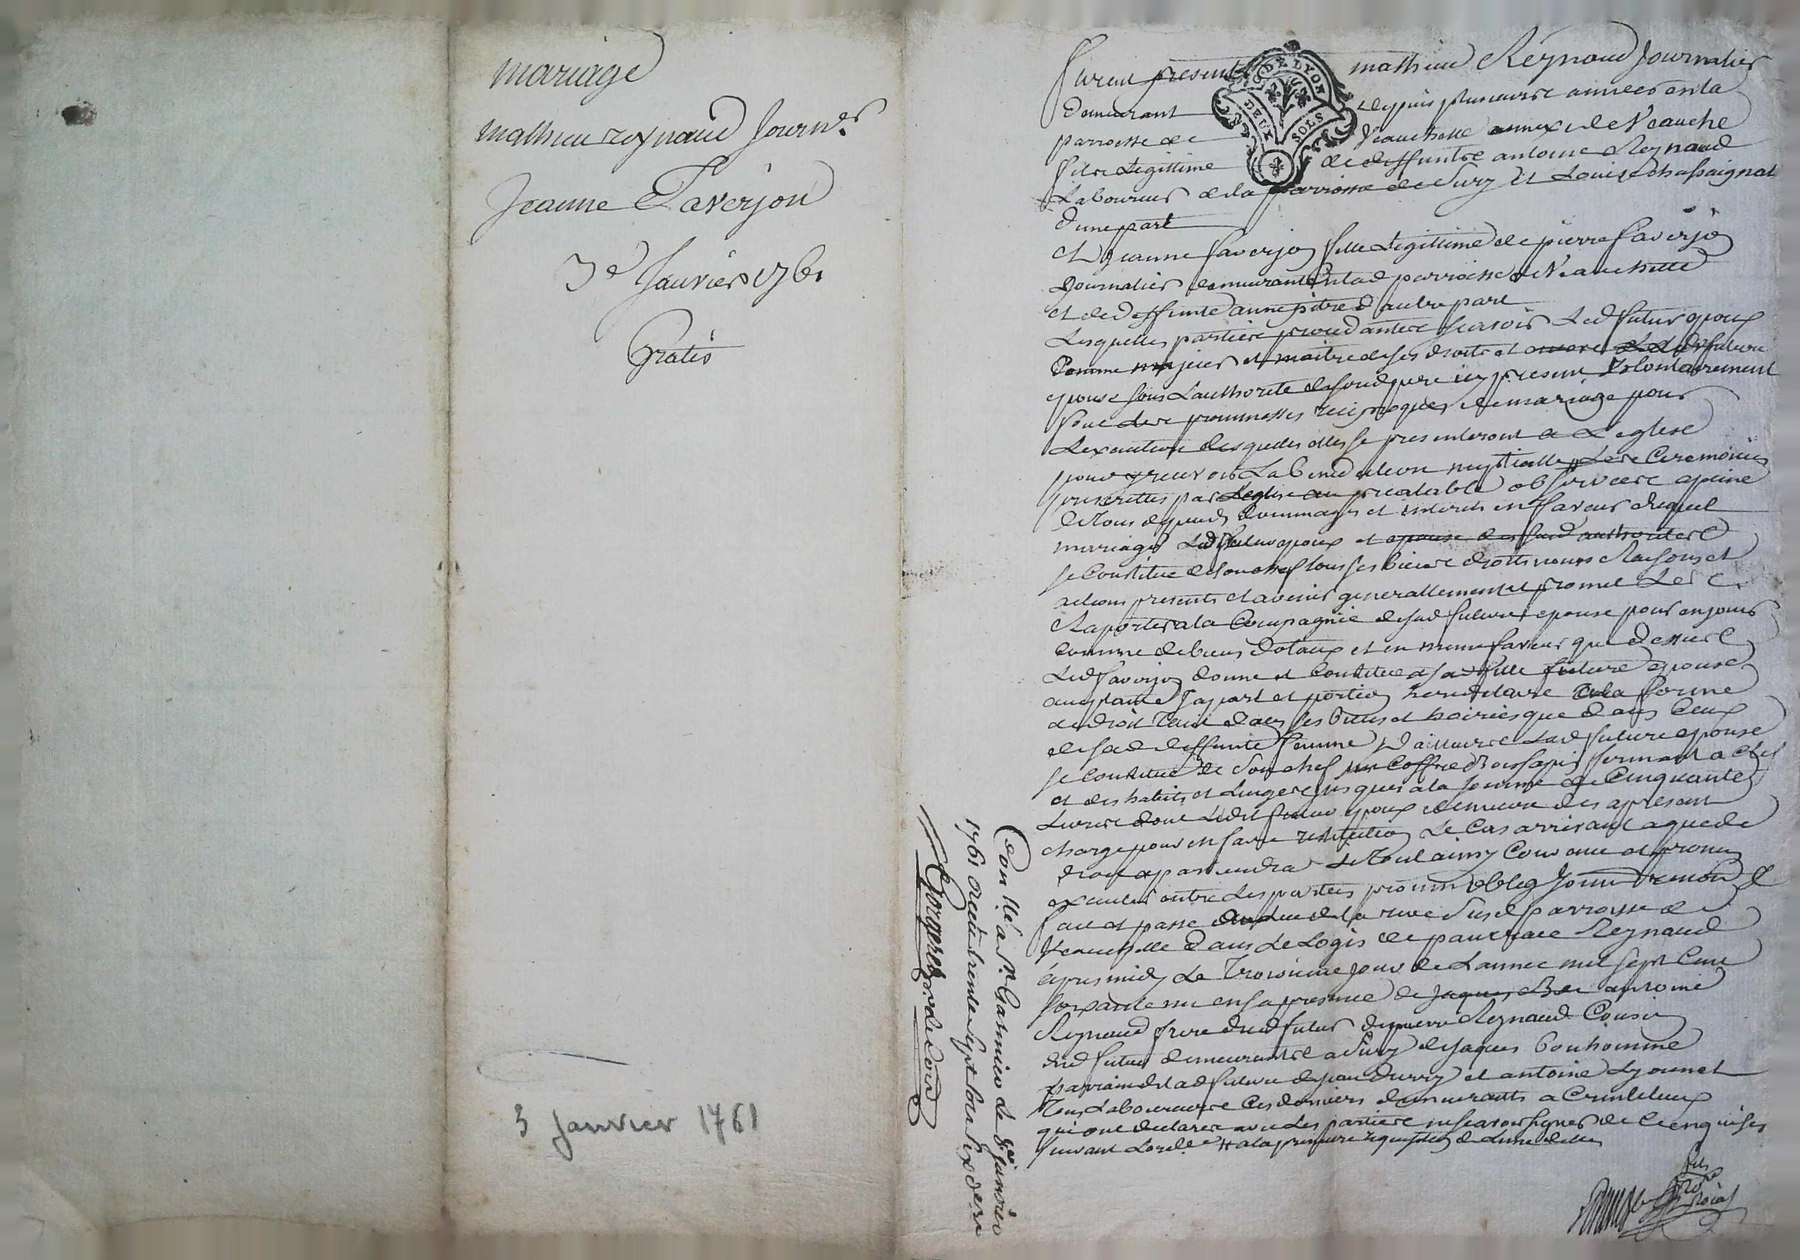 mariage
mathieu reynaud Journer
Jeanne Faverjon
3e Janvier 1761
Gratis
3 Janvier 1761
Con.lé a St Garmier Le 8e Janvier
1761 recu trente sept sous six den.
G.DE LYON
DEUX SOLS
Furent presents mathieu Reynaud Journalier
demeurant depuis plusieurs années en la
parroisse de Veauchette annexe de Veauche
fils Legittime de deffuntes antoine Reynaud
Laboureur de la parroisse de Sury et Louise chassaignat
d'une part
et Jeanne faverjon fille Legittime de pierre faverjon
Journalier demeurant en lad parroisse de Veauchette
et de deffunte anne pitre d'autre part
Lesquelles parties procedantes scavoir Led futur epoux
Comme majeur et maitre de ses droits et lad future
epouse sous L'authorité de sond pere icy present Volontairement
font des prommesses reciproques de mariage pour
L'execution desquelles elles se presenteront a L'eglise
pour y recevoir La benediction nuptialle Les Ceremonies
prescrittes par L'eglise au preatable observées a peine
de tous depends dommages et interets en faveur duquel
mariage Led futur epoux
se Constitue de son chef tous ses biens droits noms Raisons et
actions presents et avenir generallement et promet Les
Raporter a la Compagnie de sad future epouse pour en jouir
comme de biens dotaux et en meme faveur que dessus
Led faverjon donne et Constitue a sad fille future epouse
sa part et portion hereditaire en la forme
de droit tant dans ses biens et hoiries que dans Ceux
de sad deffunte femme D'ailleurs Lad future epouse
se Constitue de son chef un Coffre bois sapin fermant a Clef
et des habits et Linges jusques a la somme de Cinquante
Livres dont Ledit futur epoux demeure des apresent
chargé pour en faire restitution Le Cas arrivant a qui de
droit appartiendra Le Tout ainsy Convenu et promis
executer entre Les parties promis oblig soum renon
fait et passé de la rive Susd parroisse de
Veauchette dans Le Logis de pancrace Reynaud
apres midy Le Troisieme jour de L'année mil sept Cent
soixante un en sa presence de antoine
Reynaud frere dud futur de pierre Reynaud Cousin
dud futur demeurants a Sury de Jaques bonhomme
parrain de Lad future de jean et antoine Lyonnet
Tous Laboureurs Ces derniers demeurants a Craintilleux
qui ont declaré avec Les parties ne scavoir signer de Ce enquises
suivant Lord.ce a la premiere requisition de L'une d'elles